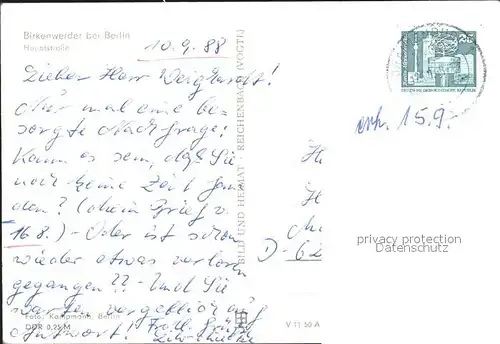 Birkenwerder bei Berlin
Hauptstraße
10.9.88
Lieber Herr
Nur mal eine be-
sorgte Nachfrage:
Kann es sein, daß Sie
noch keine Zeit fan-
den? (mein Brief v.
16.8.) - Oder ist schon
wieder etwas verloren
gegangen?? - Und Sie
warten vergeblich auf
Antwort! Frdl. Grüße
Foto: Kampmann, Berlin
DDR 0,25 M
BILD UND HEIMAT · REICHENBACH (VOGTL)
V 11 50 A
25
erh. 15.9.
D-62
privacy protection
Datenschutz